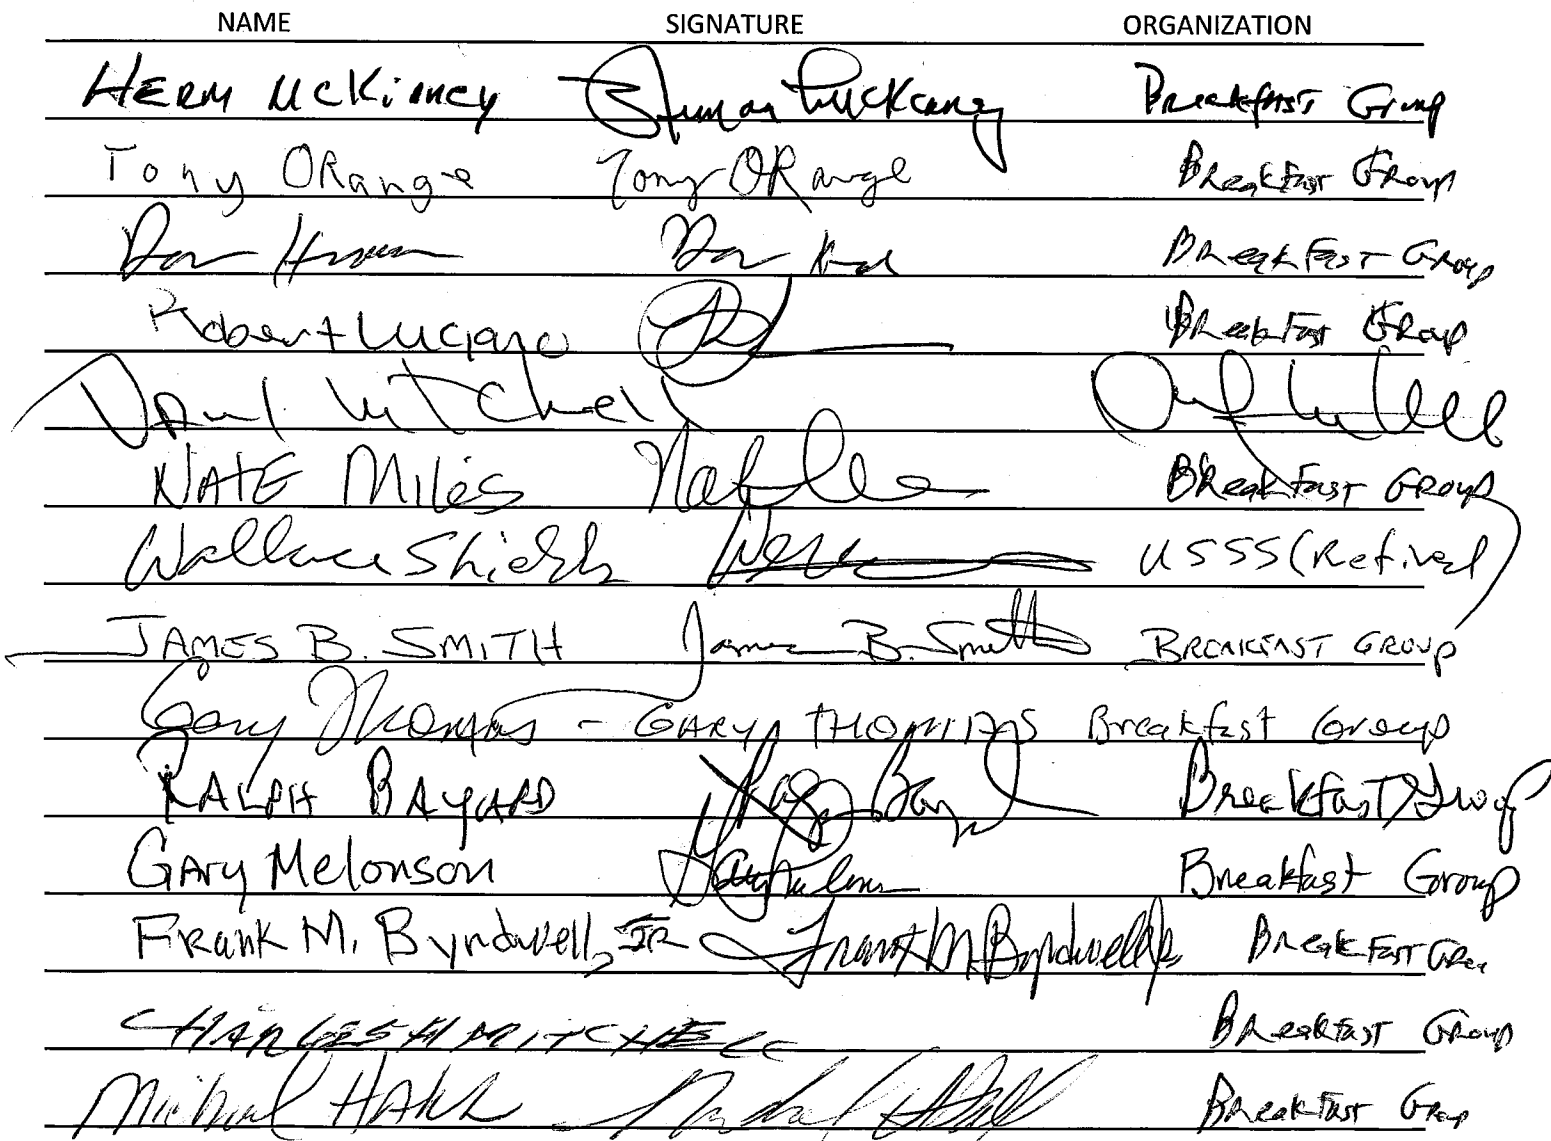 NAME SIGNATURE ORGANIZATION
HERM McKinney Breakfast Group
Tony ORange Tony ORange Breakfast Group
Breakfast Group
Robert Luciano Breakfast Group
Mitchell
NATE Miles Breakfast Group
Wallace Shields USSS (Retired)
JAMES B. SMITH James B. Smith BREAKFAST GROUP
Gary Thomas - GARY THOMAS Breakfast Group
RALPH BAYARD Breakfast Group
GARY Melonson Breakfast Group
Frank M. Byrdwell, JR Frank M. Byrdwell Jr Breakfast
CHARLES H MITCHELL Breakfast Group
Michael Breakfast Group